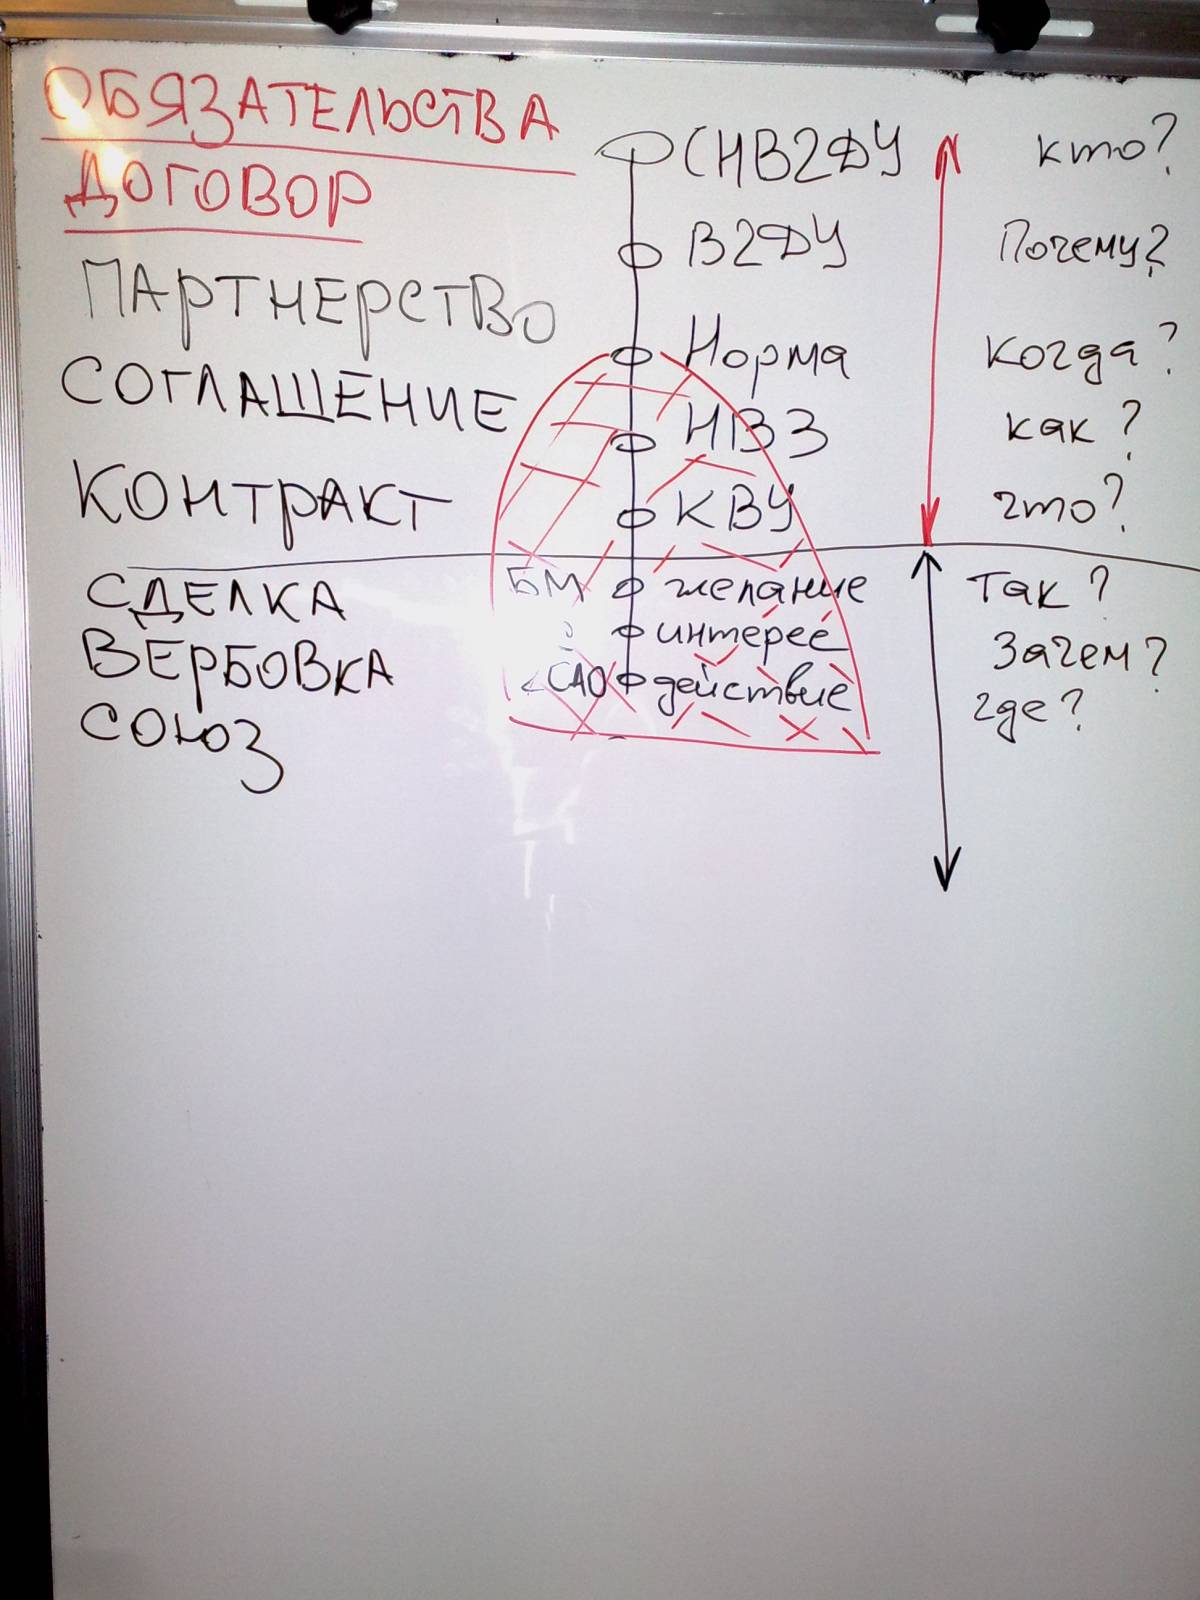 ОБЯЗАТЕЛЬСТВА
СНВ2ДУ кто?
ДОГОВОР
В2ДУ Почему?
ПАРТНЕРСТВО
Норма когда?
СОГЛАШЕНИЕ
НВЗ как?
КОНТРАКТ
КВУ что?
СДЕЛКА БМ желание Так?
ВЕРБОВКА интерес Зачем?
СОЮЗ САО действие где?